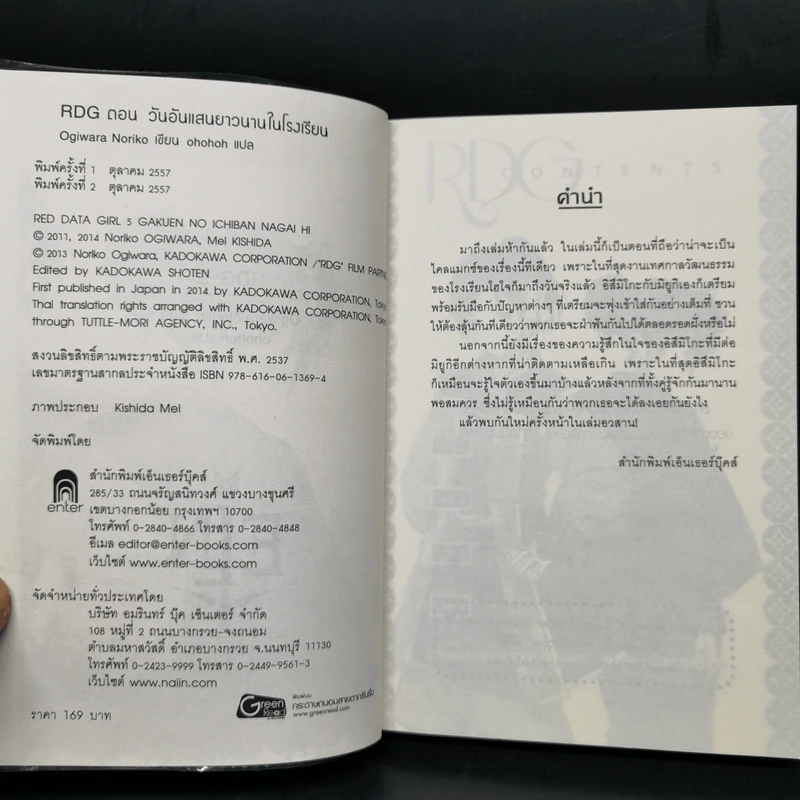 RDG ตอน วันอันแสนยาวนานในโรงเรียน
Ogiwara Noriko เขียน ohohoh แปล
พิมพ์ครั้งที่ 1 ตุลาคม 2557
พิมพ์ครั้งที่ 2 ตุลาคม 2557
RED DATA GIRL 5 GAKUEN NO ICHIBAN NAGAI HI
© 2011, 2014 Noriko OGIWARA, Mel KISHIDA
© 2013 Noriko Ogiwara, KADOKAWA CORPORATION /"RDG" FILM PARTN
Edited by KADOKAWA SHOTEN
First published in Japan in 2014 by KADOKAWA CORPORATION, Tokyo
Thai translation rights arranged with KADOKAWA CORPORATION, Tok
through TUTTLE-MORI AGENCY, INC., Tokyo.
สงวนลิขสิทธิ์ตามพระราชบัญญัติลิขสิทธิ์ พ.ศ. 2537
เลขมาตรฐานสากลประจำหนังสือ ISBN 978-616-06-1369-4
ภาพประกอบ Kishida Mel
จัดพิมพ์โดย
enter
สำนักพิมพ์เอ็นเธอร์บุ๊คส์
285/33 ถนนจรัญสนิทวงศ์ แขวงบางขุนศรี
เขตบางกอกน้อย กรุงเทพฯ 10700
โทรศัพท์ 0-2840-4866 โทรสาร 0-2840-4848
อีเมล editor@enter-books.com
เว็บไซต์ www.enter-books.com
จัดจำหน่ายทั่วประเทศโดย
บริษัท อมรินทร์ บุ๊ค เซ็นเตอร์ จำกัด
108 หมู่ที่ 2 ถนนบางกรวย-จงถนอม
ตำบลมหาสวัสดิ์ อำเภอบางกรวย จ.นนทบุรี 11130
โทรศัพท์ 0-2423-9999 โทรสาร 0-2449-9561-3
เว็บไซต์ www.naiin.com
ราคา 169 บาท
Green Read
พิมพ์บน
กระดาษถนอมสายตากรีนรี้ด
www.greenread.com
RDG
CONTENTS
คำนำ
มาถึงเล่มห้ากันแล้ว ในเล่มนี้ก็เป็นตอนที่ถือว่าน่าจะเป็น
ไคลแมกซ์ของเรื่องนี้ทีเดียว เพราะในที่สุดงานเทศกาลวัฒนธรรม
ของโรงเรียนโฮโจก็มาถึงวันจริงแล้ว อิสึมิโกะกับมิยูกิเองก็เตรียม
พร้อมรับมือกับปัญหาต่างๆ ที่เตรียมจะพุ่งเข้าใส่กันอย่างเต็มที่ ชวน
ให้ต้องลุ้นกันทีเดียวว่าพวกเธอจะฝ่าฟันกันไปได้ตลอดรอดฝั่งหรือไม่
นอกจากนี้ยังมีเรื่องของความรู้สึกในใจของอิสึมิโกะที่มีต่อ
มิยูกิอีกต่างหากที่น่าติดตามเหลือเกิน เพราะในที่สุดอิสึมิโกะ
ก็เหมือนจะรู้ใจตัวเองขึ้นมาบ้างแล้วหลังจากที่ทั้งคู่รู้จักกันมานาน
พอสมควร ซึ่งไม่รู้เหมือนกันว่าพวกเธอจะได้ลงเอยกันยังไง
แล้วพบกันใหม่ครั้งหน้าในเล่มอวสาน!
สำนักพิมพ์เอ็นเธอร์บุ๊คส์